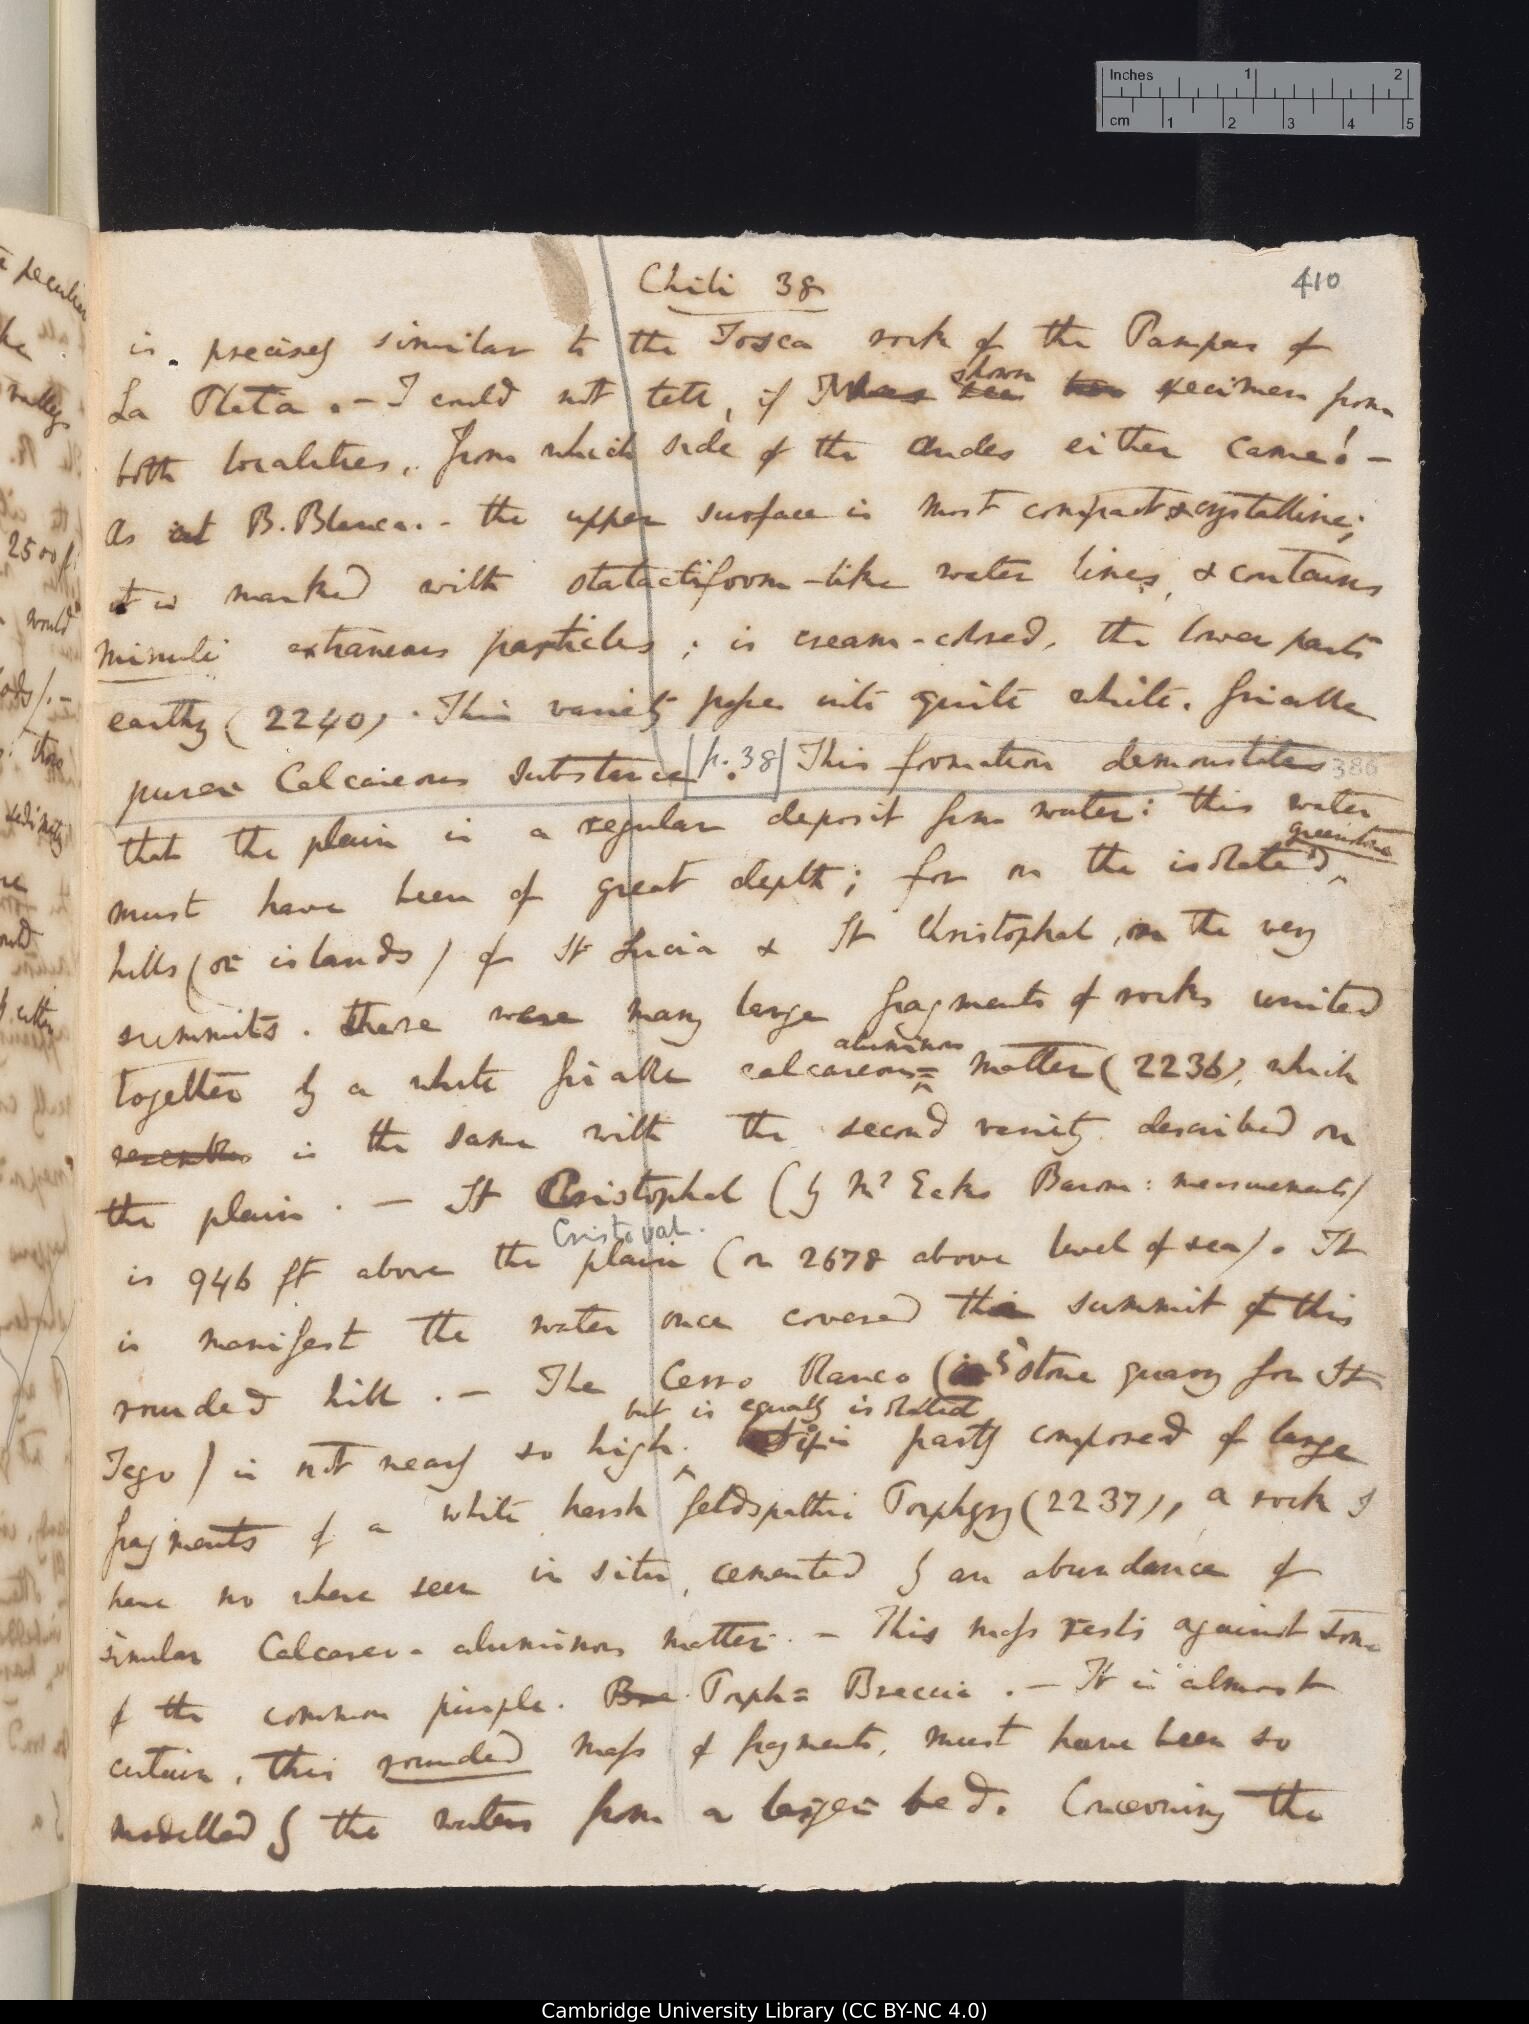 Inches 1 2
cm 1 2 3 4 5
Chili 38
410
is precisely similar to the Tosca rock of the Pampas of
La Plata. — I could not tell, if shown specimens from
both localities, from which side of the Andes either came! —
As at B. Blanca. - the upper surface is most compact & crystalline;
it is marked with stalactiform-like water lines, & contains
minute extraneous particles; is cream-colored, the lower parts
earthy (2240). This variety passes into quite white, friable
purer Calcareous substance. [p. 38] This formation demonstates 386
that the plain is a regular deposit from water: this water
must have been of great depth; for on the isolated greenstone
hills (or islands) of St Lucia & St Christophal, on the very
summits. there were many large fragments of rocks united
together by a white friable calcareous= aluminous matter (2236), which
resembles is the same with the second variety described on
the plain. — St Christophal (by Mr Ecks Barom: measurements)
Cristoval.
is 946 ft above the plain (or 2678 above level of sea). It
is manifest the water once covered the summit of this
rounded hill. — The Cerro Blanco (by stone quarry for St
but is equally isolated
Jago) is not nearly so high. It is partly composed of large
fragments of a white harsh feldspathic Porphyry (2237), a rock I
have no where seen in situ, cemented by an abundance of
similar Calcareo-aluminous matter. — This mass rests against some
of the common purple. Bre Porph= Breccia. — It is almost
certain, this rounded mass of fragments, must have been so
modelled by the waters from a larger bed. Concerning the
Cambridge University Library (CC BY-NC 4.0)